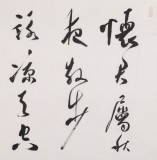 懷君屬秋
夜散步
詠涼天空